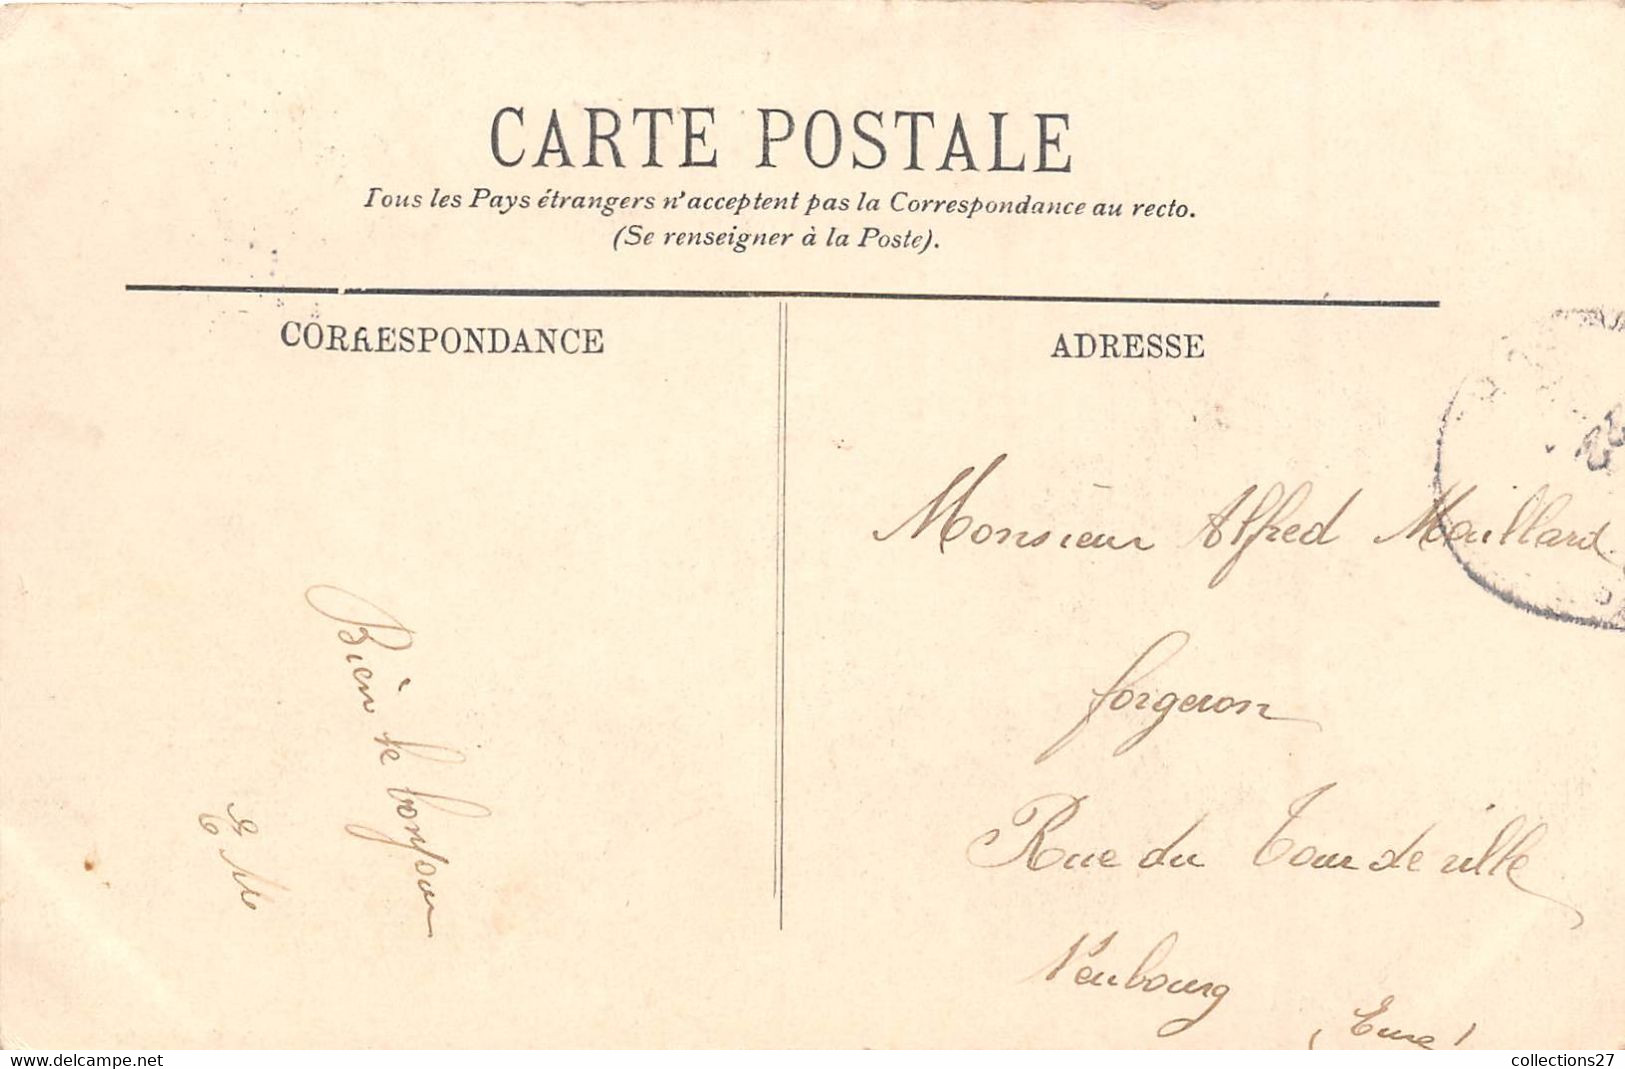 CARTE POSTALE
Tous les Pays étrangers n'acceptent pas la Correspondance au recto.
(Se renseigner à la Poste).
CORRESPONDANCE
Bien le bonjour
E M
ADRESSE
Monsieur Alfred Maillard
forgeron
Rue du Tour de ville
Neubourg
(Eure)
www.delcampe.net
collections27